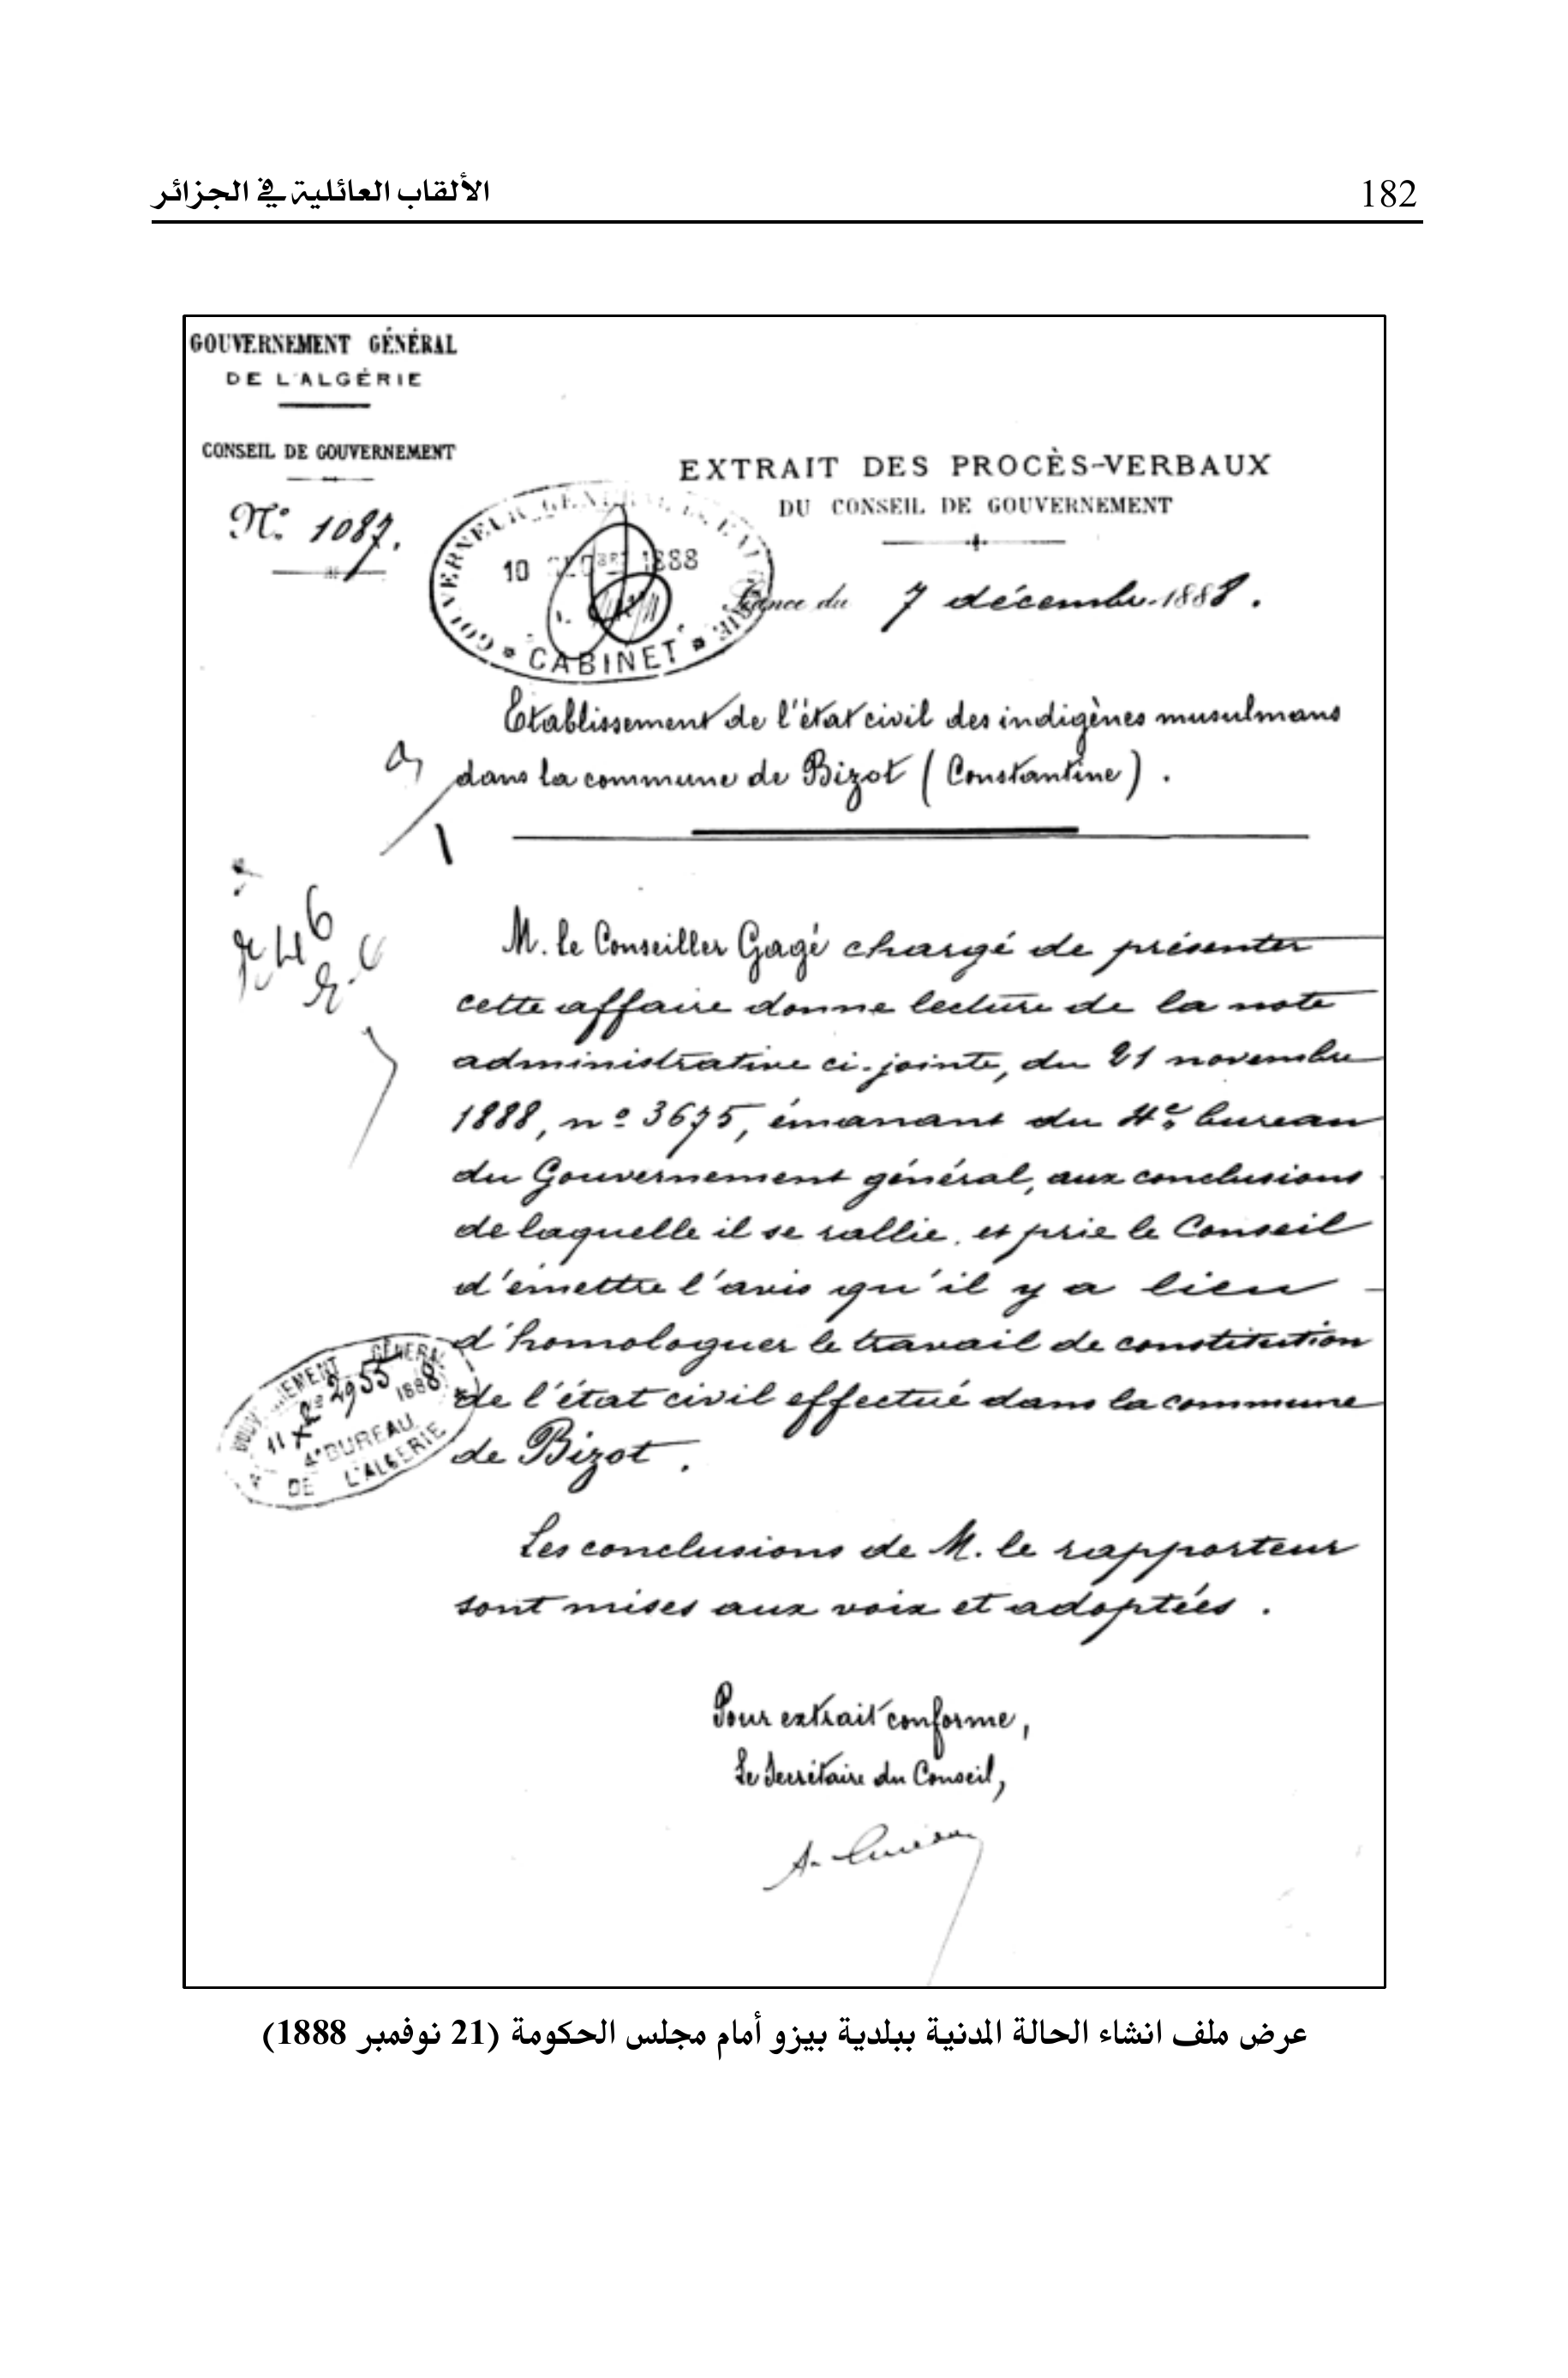 الألقاب العائلية في الجزائر
182
GOUVERNEMENT GÉNÉRAL
DE L'ALGÉRIE
CONSEIL DE GOUVERNEMENT
N.° 1087.
EXTRAIT DES PROCÈS-VERBAUX
DU CONSEIL DE GOUVERNEMENT
GOUVERNEUR GÉNÉRAL
10 1888
CABINET
Séance du 7 décembre 1888.
Etablissement de l'état civil des indigènes musulmans
dans la commune de Bizot (Constantine).
M. le Conseiller Gagé chargé de présenter
cette affaire donne lecture de la note
administrative ci-jointe, du 21 novembre
1888, n° 3675, émanant du 4e bureau
du Gouvernement général, aux conclusions
de laquelle il se rallie, et prie le Conseil
d'émettre l'avis qu'il y a lieu
d'homologuer le travail de constitution
de l'état civil effectué dans la commune
de Bizot.
GÉNÉRAL
2955 1888
4e BUREAU
DE L'ALGERIE
Les conclusions de M. le rapporteur
sont mises aux voix et adoptées.
Pour extrait conforme,
Le Secrétaire du Conseil,
عرض ملف انشاء الحالة المدنية ببلدية بيزو أمام مجلس الحكومة (21 نوفمبر 1888)